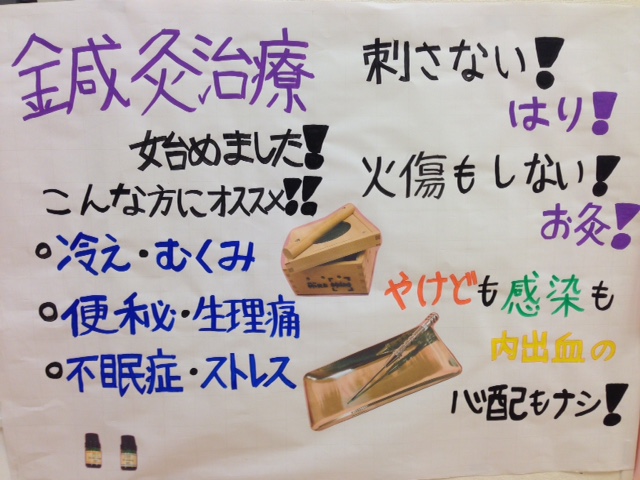 鍼灸治療
始めました!
こんな方にオススメ!!
・冷え・むくみ
・便秘・生理痛
・不眠症・ストレス
刺さない!
はり!
火傷もしない!
お灸!
やけども感染も
内出血の
心配もナシ!